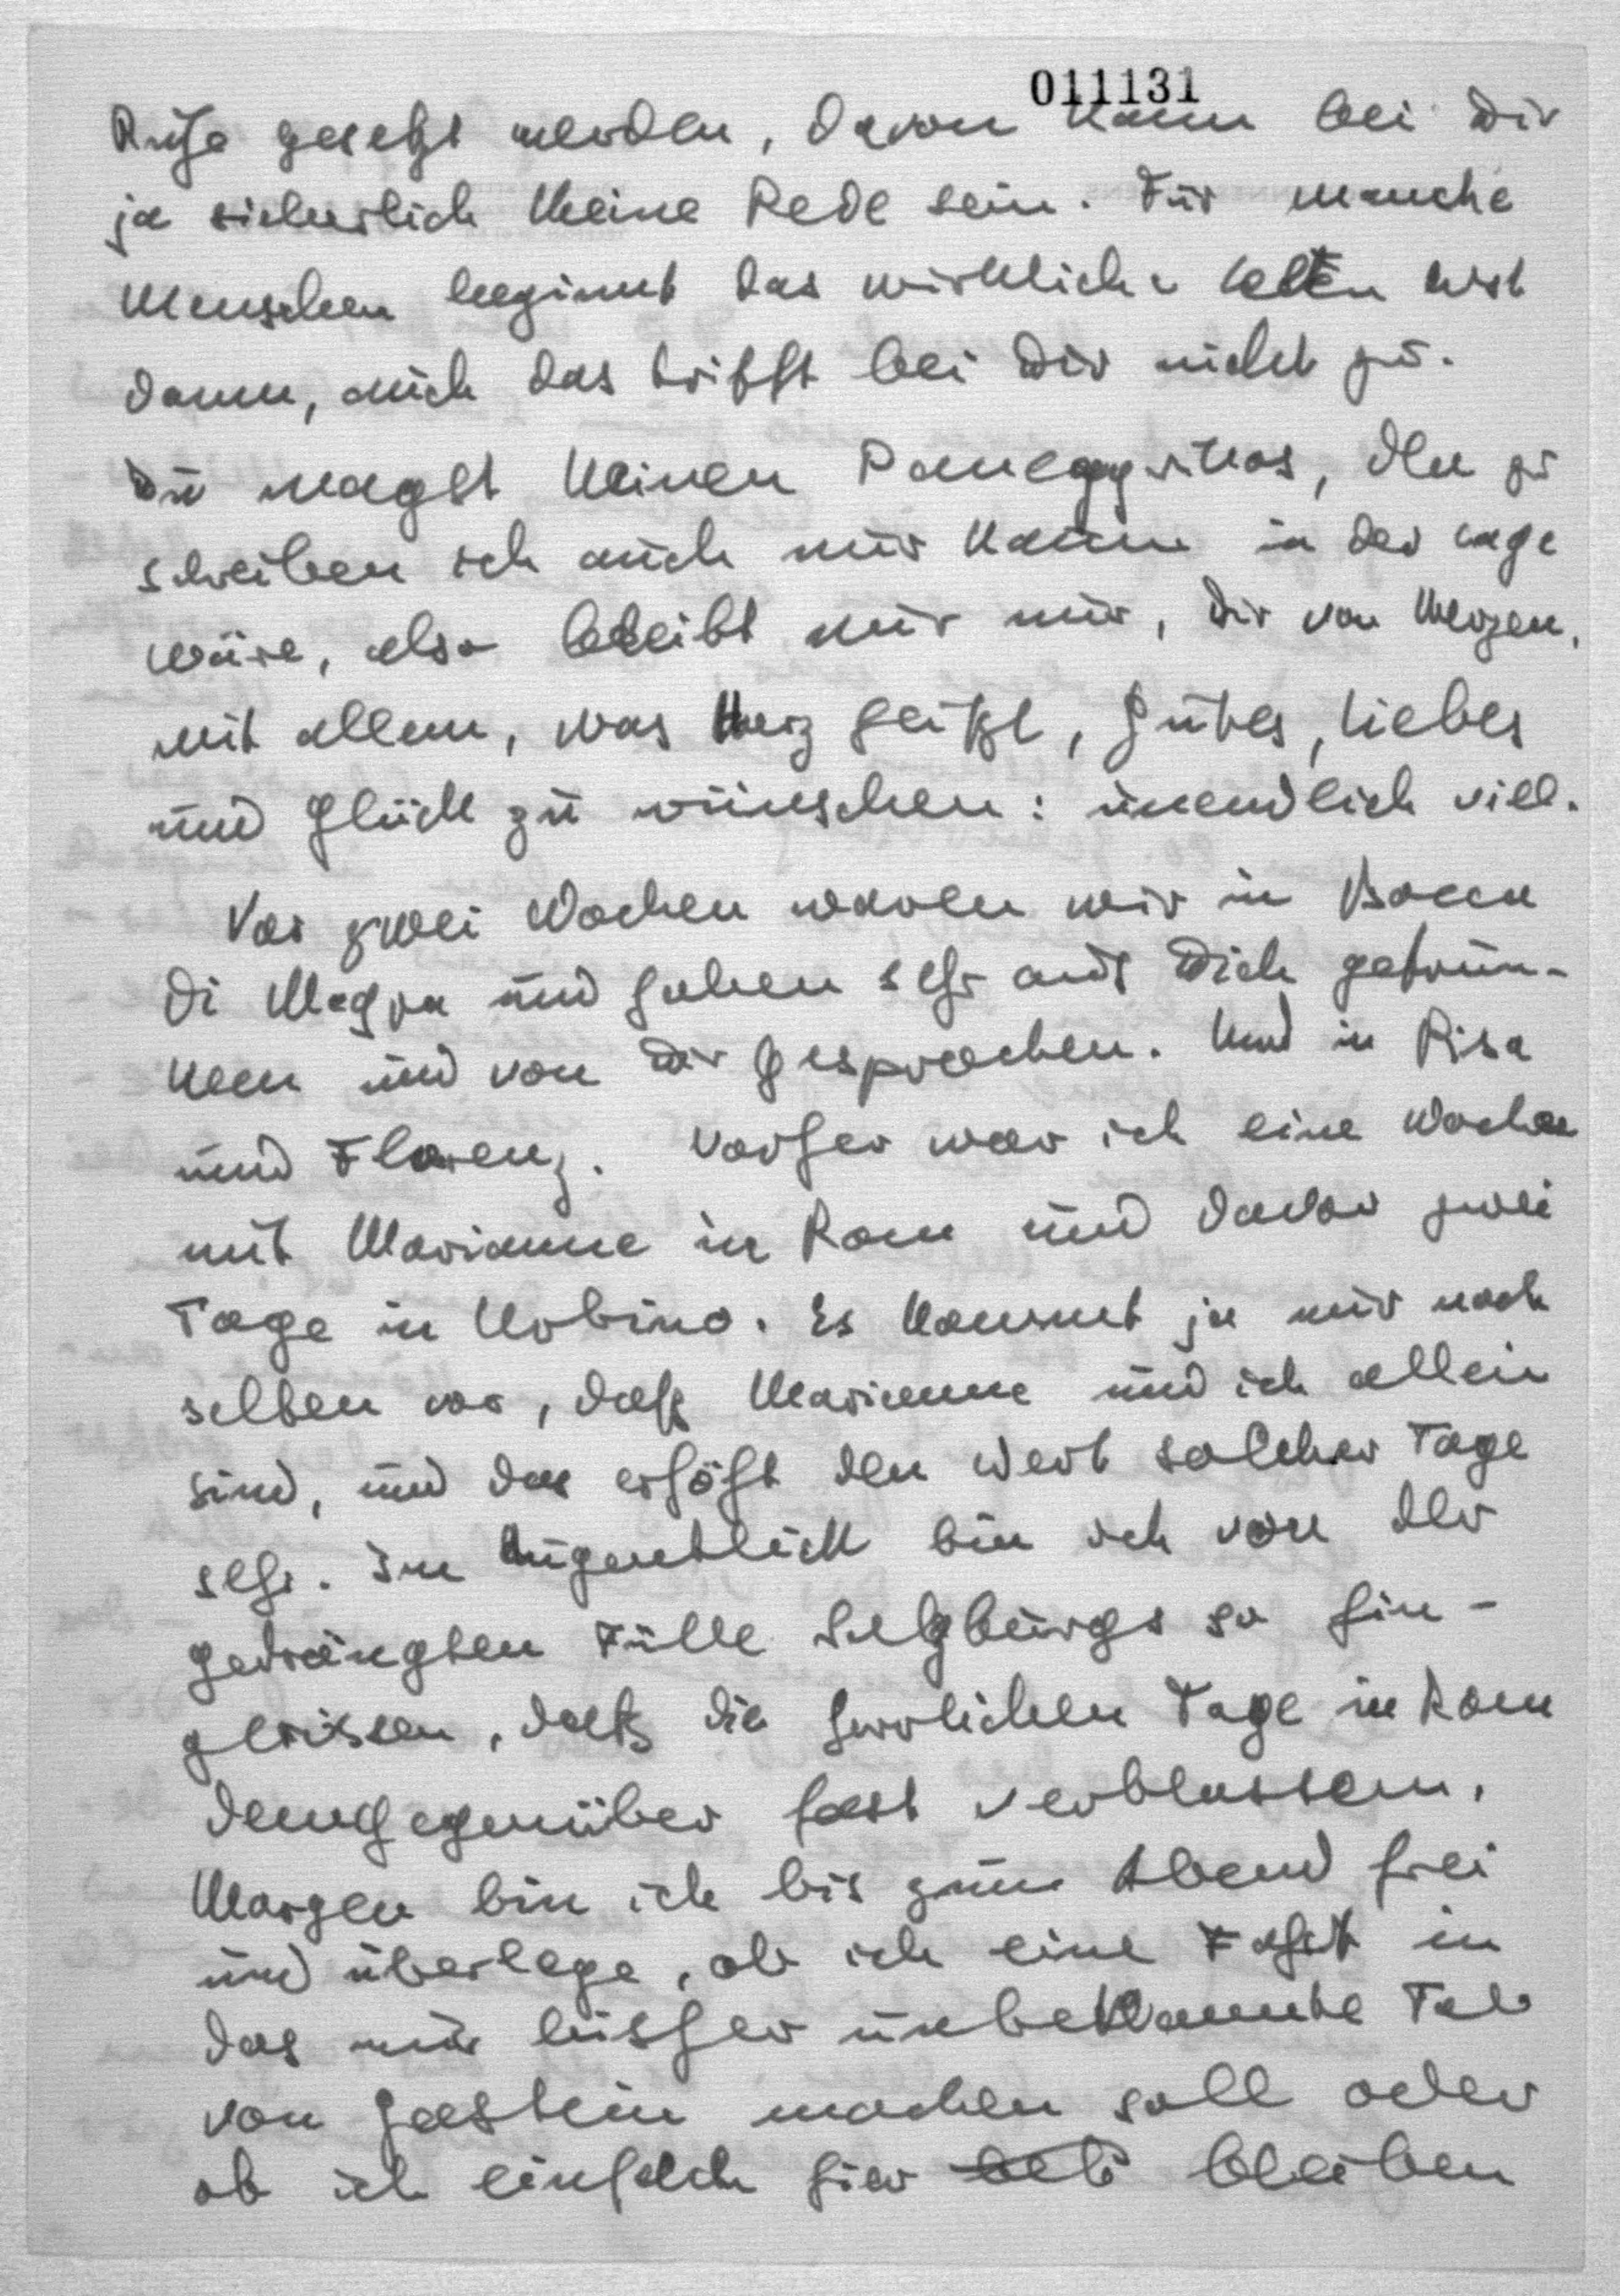 011131
Ruhe gesetzt werden, davon kann bei Dir
ja sicherlich keine Rede sein. Für manche
Menschen beginnt das wirkliche Leben erst
dann, auch das trifft bei Dir nicht zu.
Du magst keinen Panegyrikos, den zu
schreiben ich auch nur kaum in der Lage
wäre, also bleibt mir nur, Dir von Herzen,
mit allem, was Herz heißt, Gutes, Liebes
und Glück zu wünschen: unendlich viel.
Vor zwei Wochen waren wir in Bocca
di Magra und haben sehr auf Dich getrun-
ken und von Dir gesprochen. Und in Pisa
und Florenz. Vorher war ich eine Woche
mit Marianne in Rom und davor zwei
Tage in Urbino. Es kommt ja nur noch
selten vor, daß Marianne und ich allein
sind, und das erhöht den Wert solcher Tage
sehr. Im Augenblick bin ich von der
gedrängten Fülle Salzburgs so hin-
gerissen, daß die herrlichen Tage in Rom
demgegenüber fast verblassen.
Morgen bin ich bis zum Abend frei
und überlege, ob ich eine Fahrt in
das mir bisher unbekannte Tal
von Gastein machen soll oder
ob ich einfach hier bleiben